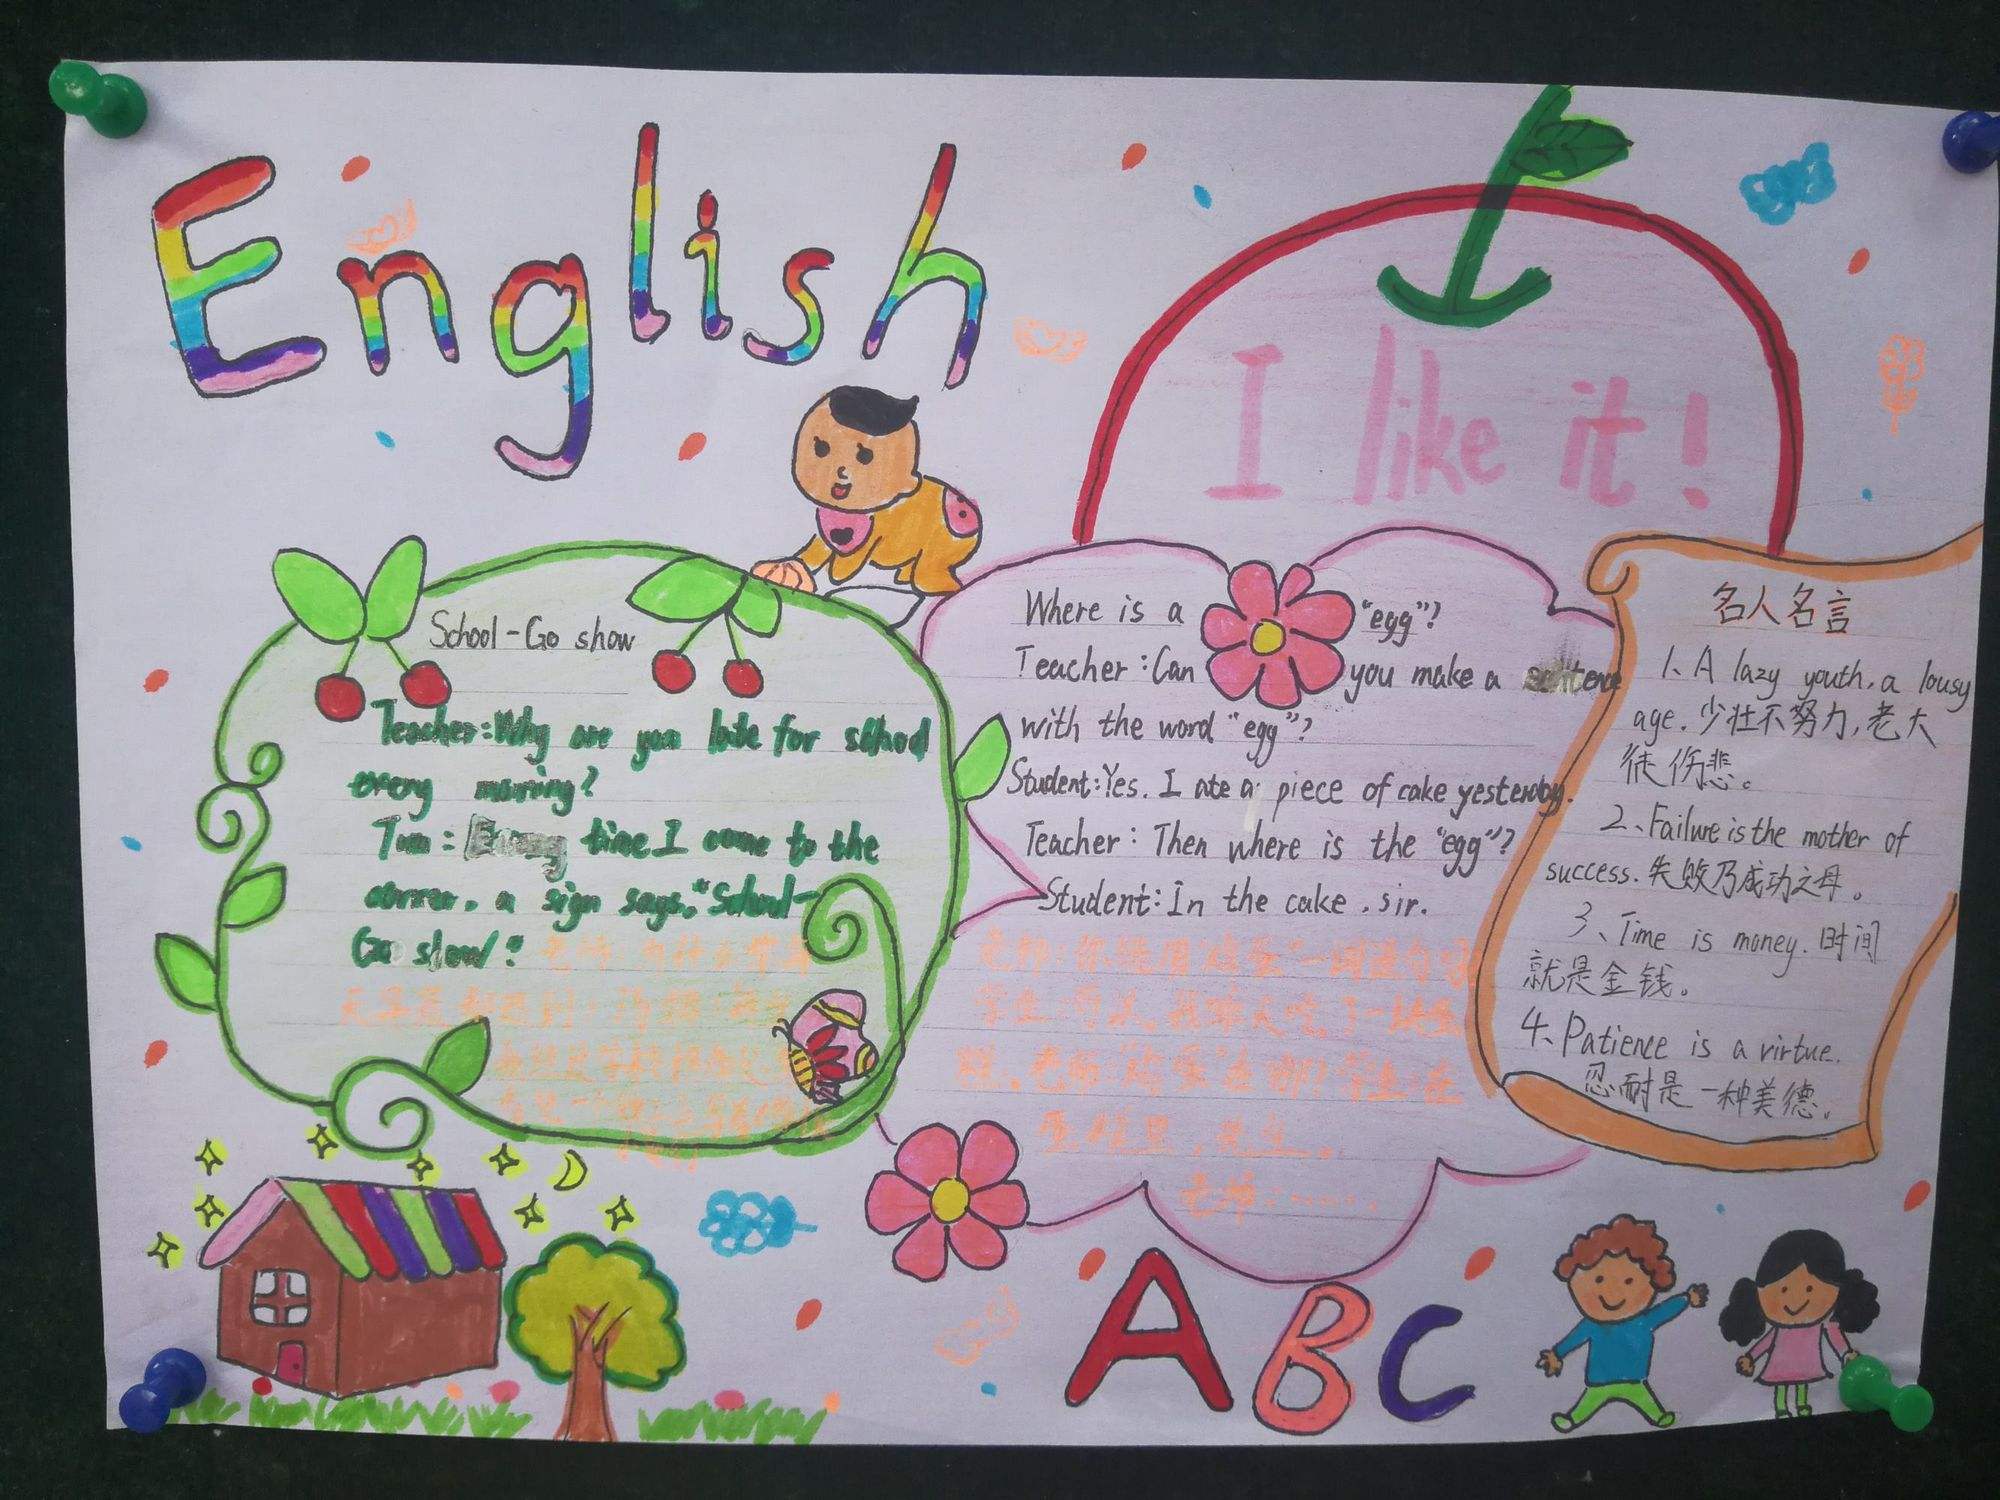 English
I like it!
School-Go show
Teacher: Why are you late for school
every morning?
Tom: Every time I come to the
corner, a sign says, "School-
Go slow".
老师:为什么你每
天早晨都迟到?汤姆:每当
Where is a "egg"?
Teacher: Can you make a sentence
with the word "egg"?
Student: Yes. I ate a piece of cake yesterday.
Teacher: Then where is the "egg"?
Student: In the cake, sir.
老师:你能用"鸡蛋"一词造句吗?
学生:可以,我昨天吃了一块蛋
糕。老师:"鸡蛋"在哪?学生:在
蛋糕里,先生。
老师:......
名人名言
1、A lazy youth, a lousy
age. 少壮不努力,老大
徒伤悲。
2、Failure is the mother of
success. 失败乃成功之母。
3、Time is money. 时间
就是金钱。
4、Patience is a virtue.
忍耐是一种美德。
ABC